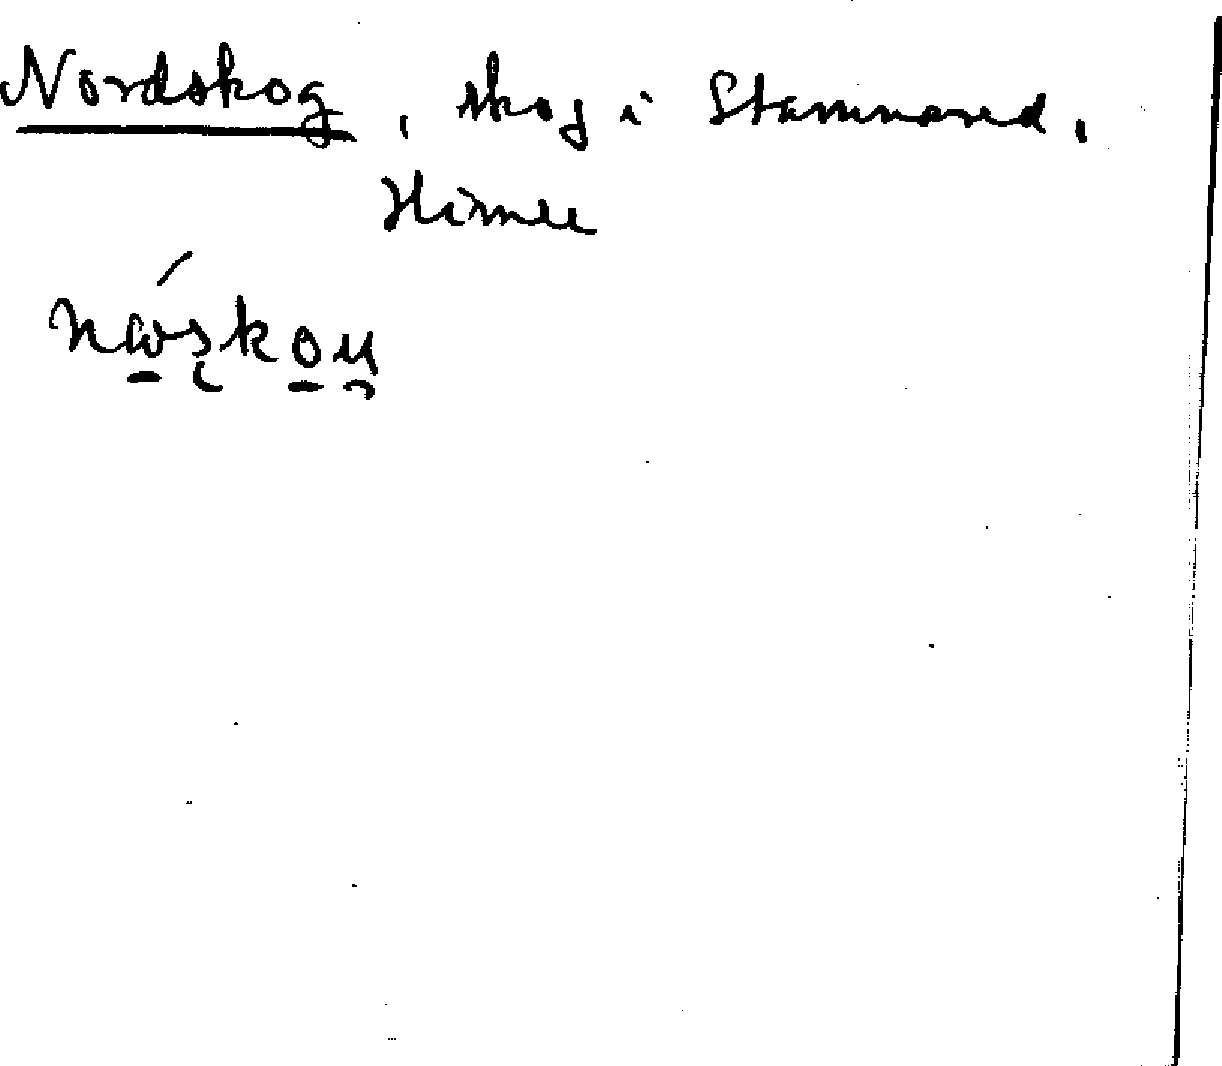 Nordskog, skog i Stamnared,
Himle
nåskou